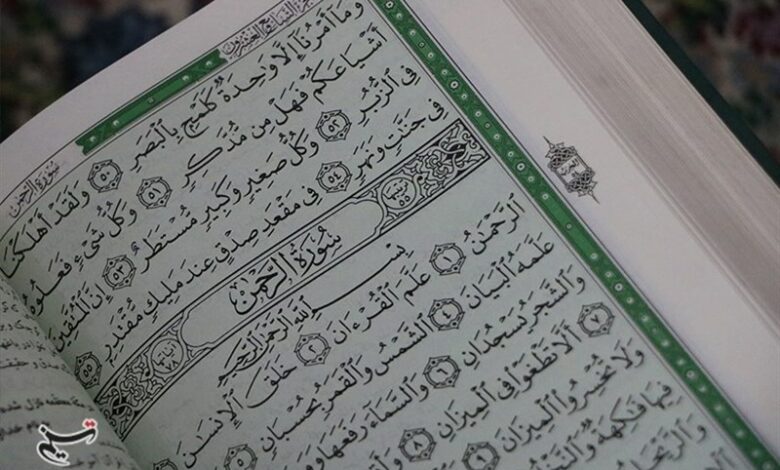 سُورَةُ الرَّحْمٰن
وَمَآ أَمْرُنَآ إِلَّا وَٰحِدَةٌ كَلَمْحٍۭ بِٱلْبَصَرِ ٥٠ وَلَقَدْ أَهْلَكْنَآ
أَشْيَاعَكُمْ فَهَلْ مِن مُّدَّكِرٍ ٥١ وَكُلُّ شَىْءٍ فَعَلُوهُ
فِى ٱلزُّبُرِ ٥٢ وَكُلُّ صَغِيرٍ وَكَبِيرٍ مُّسْتَطَرٌ ٥٣ إِنَّ ٱلْمُتَّقِينَ
فِى جَنَّٰتٍ وَنَهَرٍ ٥٤ فِى مَقْعَدِ صِدْقٍ عِندَ مَلِيكٍ مُّقْتَدِرٍۭ ٥٥
سُورَةُ الرَّحْمٰن
بِسْمِ ٱللَّهِ ٱلرَّحْمَٰنِ ٱلرَّحِيمِ
ٱلرَّحْمَٰنُ ١ عَلَّمَ ٱلْقُرْءَانَ ٢ خَلَقَ ٱلْإِنسَٰنَ
عَلَّمَهُ ٱلْبَيَانَ ٤ ٱلشَّمْسُ وَٱلْقَمَرُ بِحُسْبَانٍ ٥
وَٱلشَّجَرُ يَسْجُدَانِ ٦ وَٱلسَّمَآءَ رَفَعَهَا
٧ أَلَّا تَطْغَوْا۟ فِى ٱلْمِيزَانِ ٨
وَلَا تُخْسِرُوا۟ ٱلْمِيزَانَ ٩
فِيهَا فَٰكِهَةٌ
وَٱلرَّيْحَانُ
تسنیم